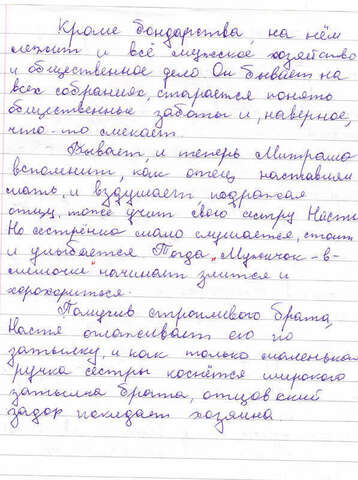 Кроме бондарства, на нём
лежит и всё мужское хозяйство
и общественное дело. Он бывает на
всех собраниях, старается понять
общественные заботы и, наверное,
что-то смекает.
Бывает, и теперь Митраша
вспомнит, как отец наставлял
мать, и вздумает, подражая
отцу, тоже учит свою сестру Настю
Но сестрёнка мало слушается, стоит
и улыбается Тогда „Мужичок-в-
мешочке" начинает злится и
хорохориться.
Помучив строптивого брата,
Настя оглаживает его по
затылку, и как только маленькая
ручка сестры коснётся широкого
затылка брата, отцовский
задор покидает хозяина.